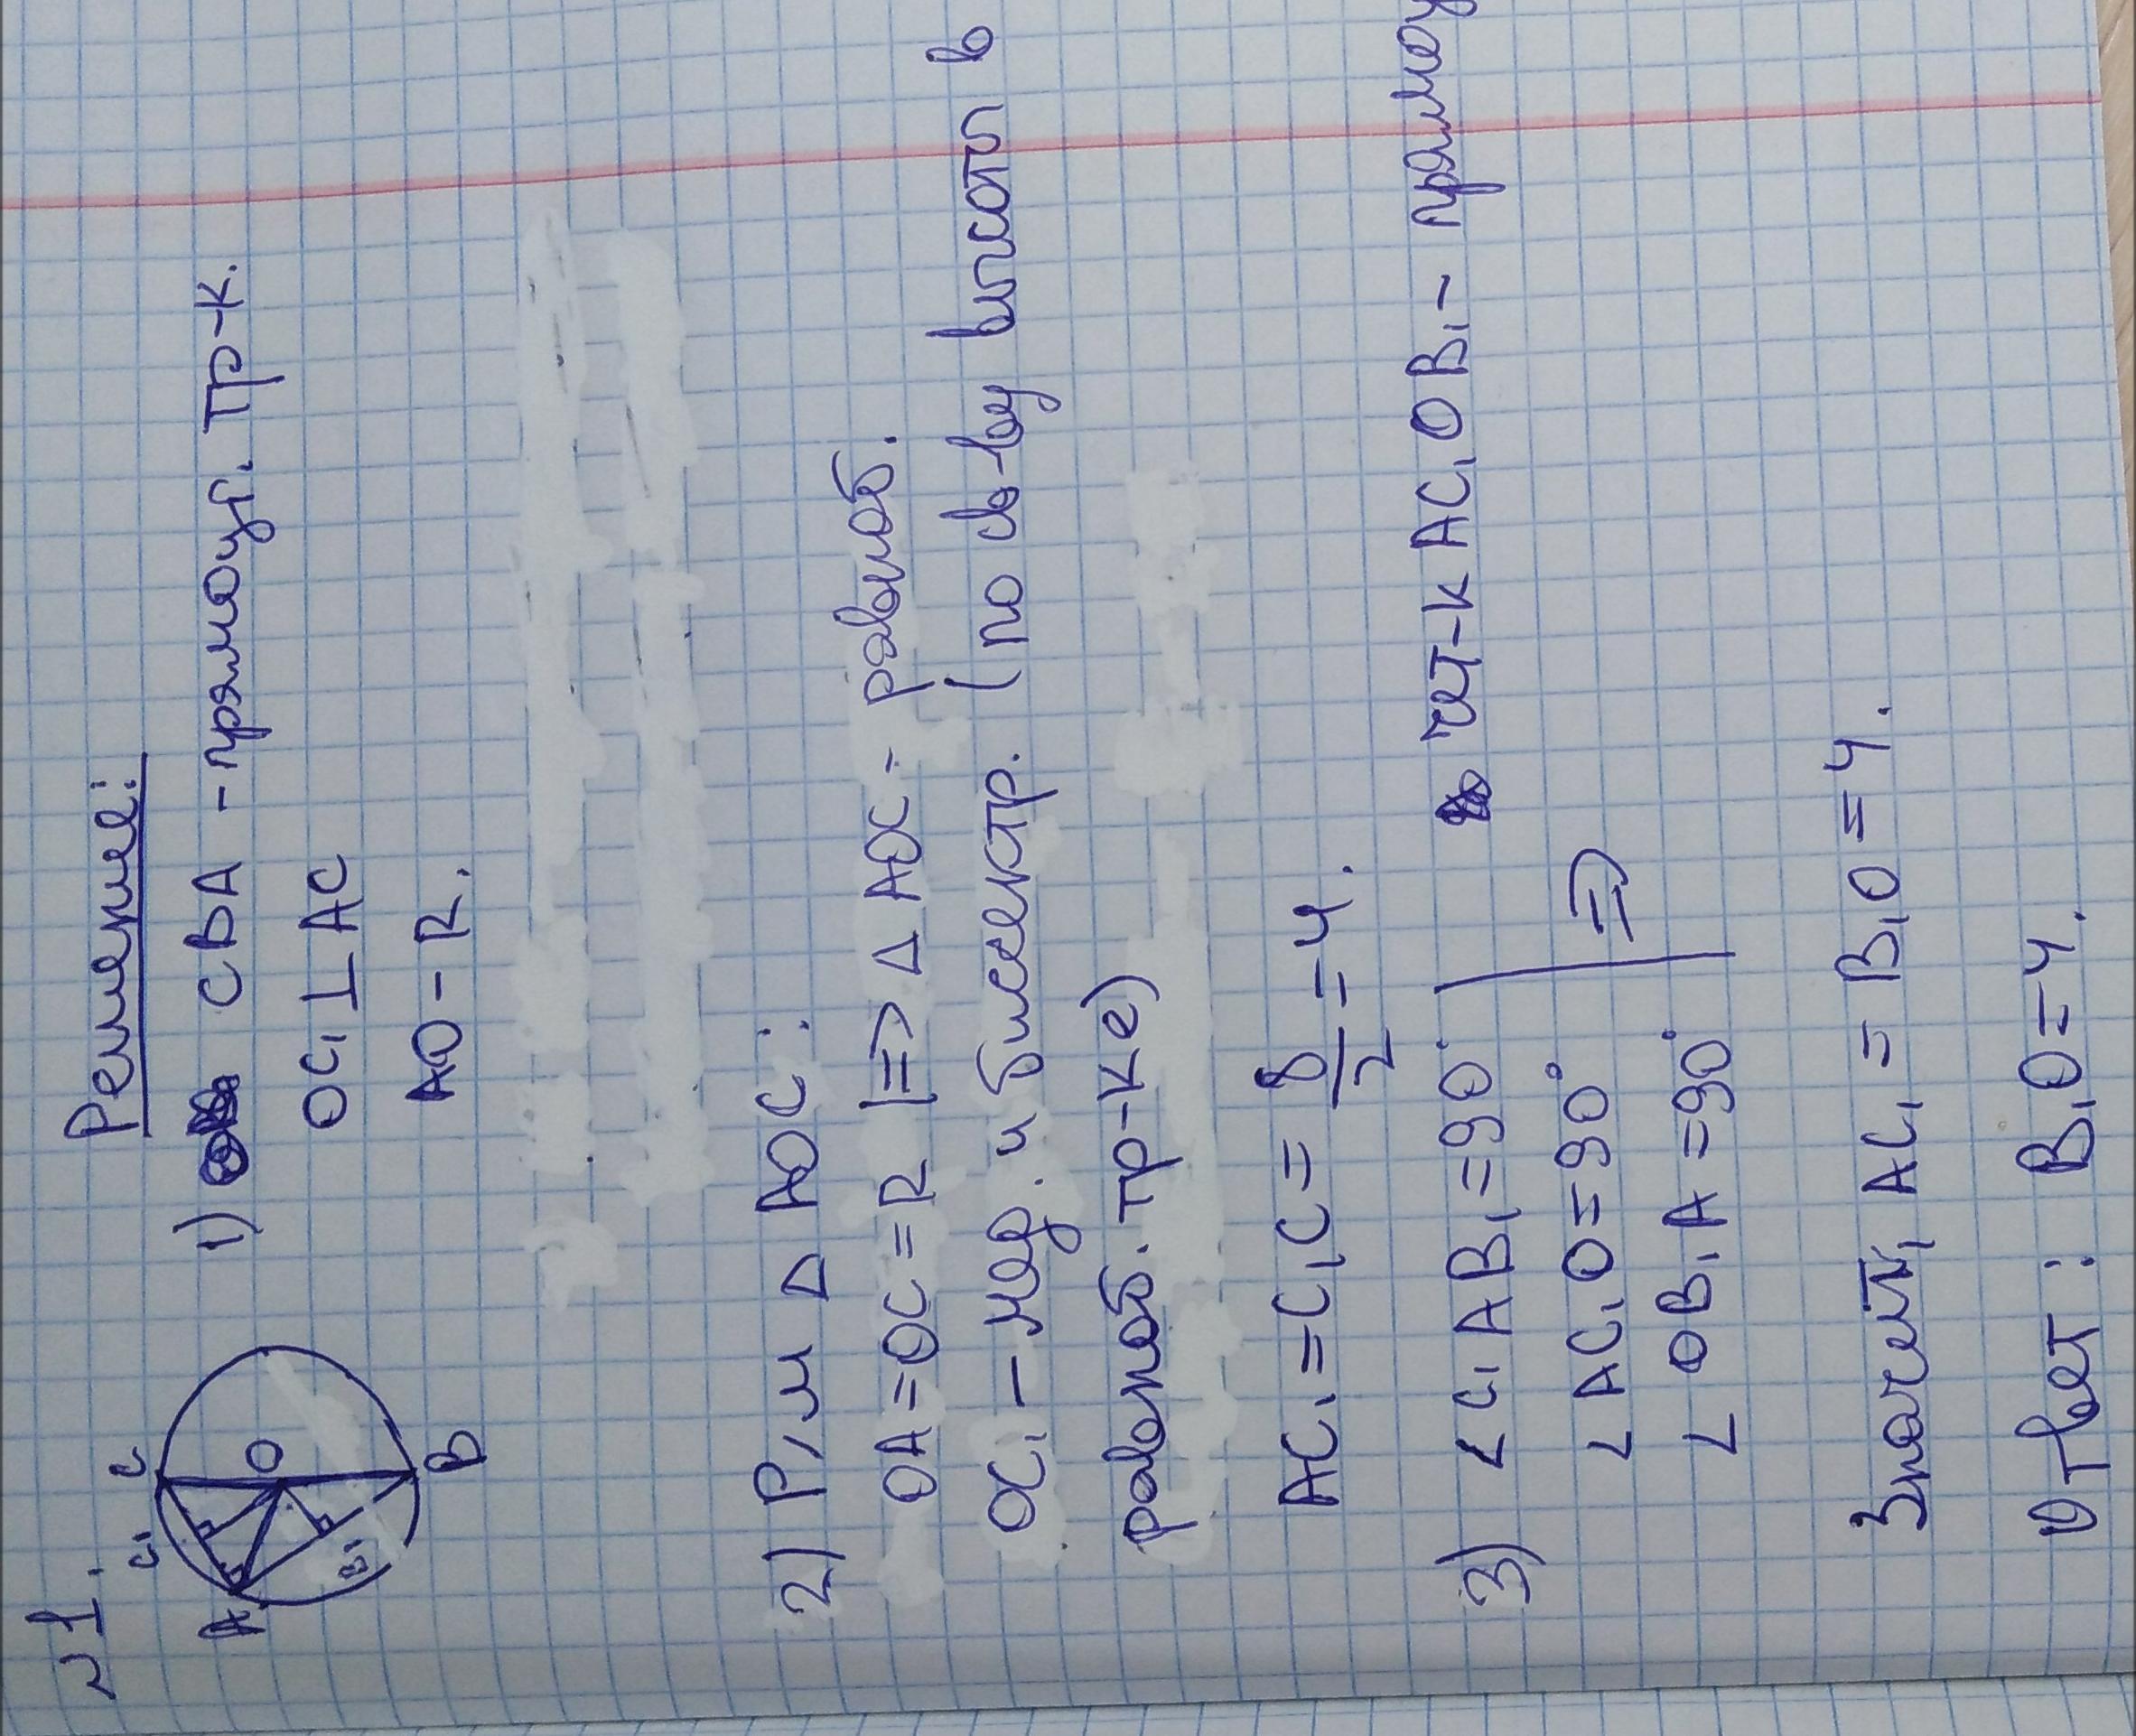 №1.
Решение:
A
C1
C
O
B1
B
1) CBA - прямоуг. тр-к.
OC1 ⊥ AC
AO - R.
2) Р/м Δ AOC:
OA = OC = R |=> Δ AOC - равноб.
OC1 - мед. и биссектр. (по св-ву высоты в
равноб. тр-ке)
AC1 = C1C = 8/2 = 4.
3) ∠C1AB1 = 90° чет-к AC1OB1 - прямоуг
∠AC1O = 90° =>
∠OB1A = 90°
Значит, AC1 = B1O = 4.
Ответ: B1O = 4.